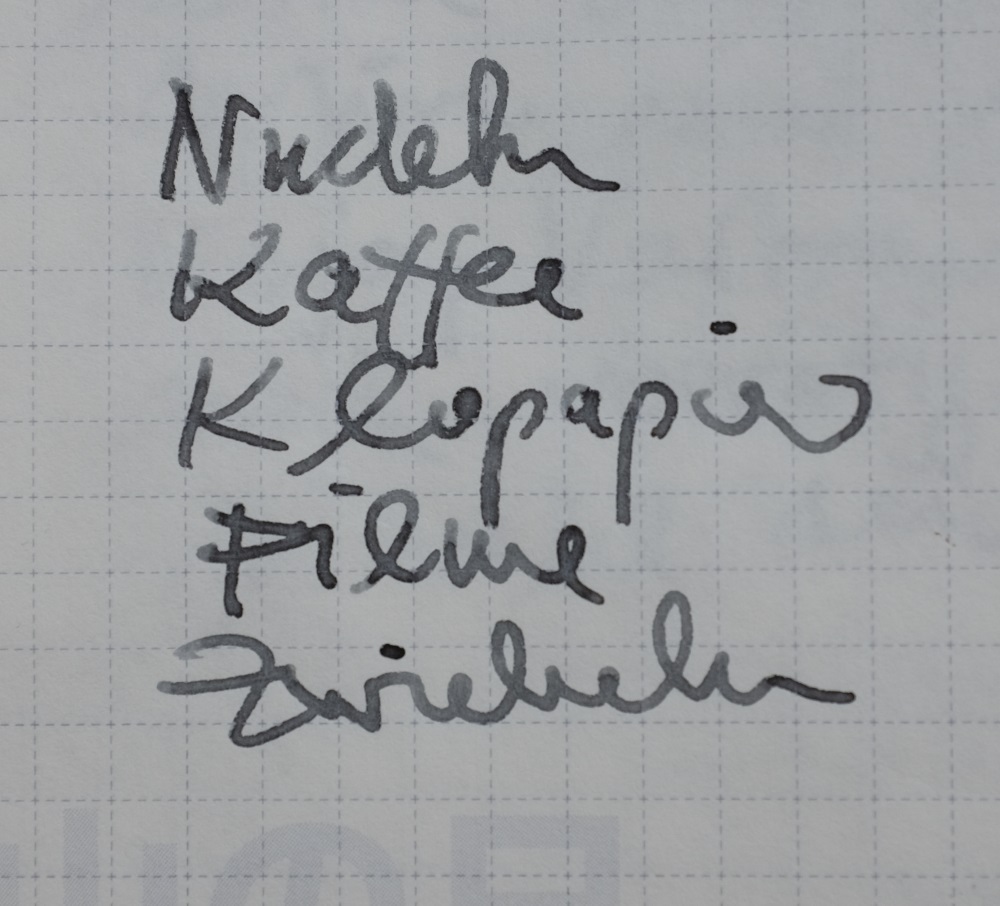 Nudeln
Kaffee
Klopapier
Filme
Zwiebeln